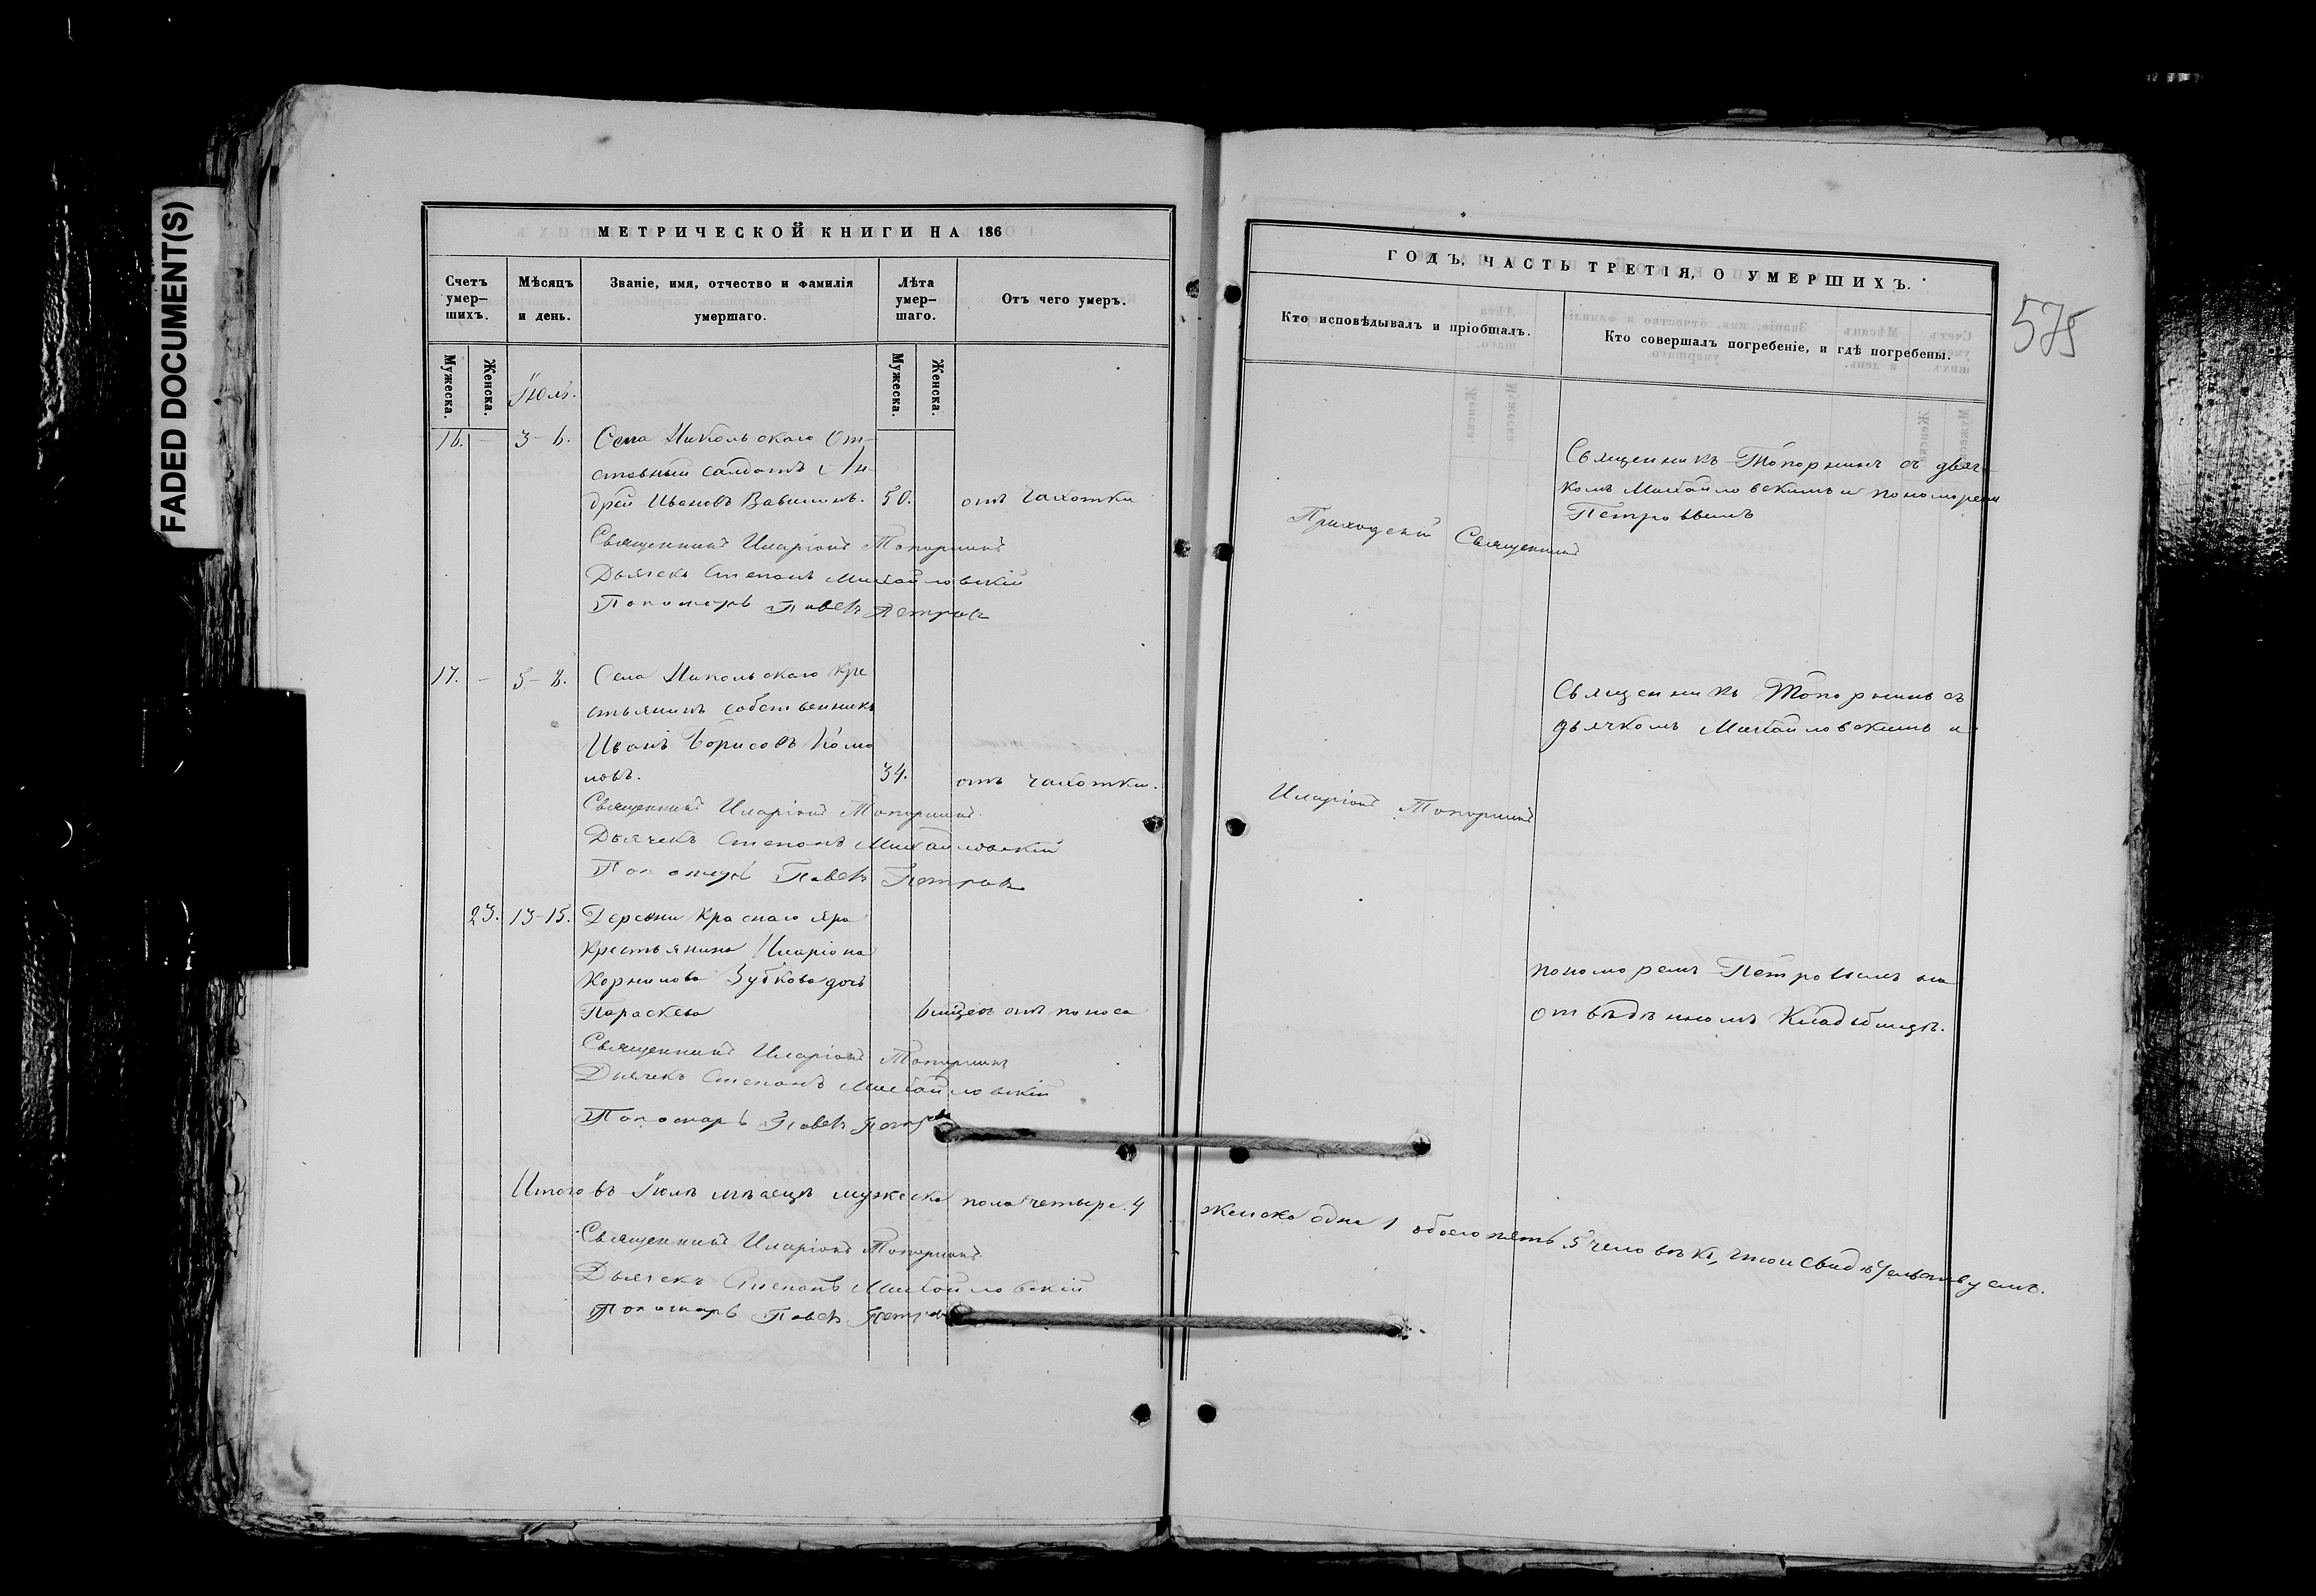 FADED DOCUMENT(S)
МЕТРИЧЕСКОЙ КНИГИ НА 186
Счетъ умер-шихъ.
Мѣсяцъ и день.
Званіе, имя, отчество и фамилія умершаго.
Лѣта умер-шаго.
Отъ чего умеръ.
Мужеска.
Женска.
Мужеска.
Женска.
Іюль.
16. - 3-6. Села Никольскаго От-
ставный салдатъ Ан-
дрей Ивановъ Вавилинъ. 50. отъ чахотки
Священникъ Иларіонъ Топорнинъ
Дьячекъ Степанъ Михайловскій
Пономарь Павелъ Петровъ
17. - 5-8. Села Никольскаго Кре
стьянинъ собственникъ
Иванъ Борисовъ
34. отъ чахотки.
Священникъ Иларіонъ Топорнинъ.
Дьячекъ Степанъ Михайловскій
Пономарь Павелъ Петровъ
23. 13-15. Деревни Краснаго Яра
Крестьянина Иларіона
Корнилова Зубкова дочь
Параскева 6 мѣсец. отъ поноса
Священникъ Иларіонъ Топорнинъ
Дьячекъ Степанъ Михайловскій
Пономарь Павелъ Петровъ
Итого въ Іюлѣ мѣсяцѣ мужеска пола четыре. 4 женска одна 1 обоего пять 5 человѣкъ, что и свидѣтельствуемъ.
Священникъ Иларіонъ Топорнинъ.
Дьячекъ Степанъ Михайловскій
Пономарь Павелъ Петровъ
ГОДЪ, ЧАСТЬ ТРЕТІЯ, О УМЕРШИХЪ.
575
Кто исповѣдывалъ и пріобщалъ.
Кто совершалъ погребеніе, и гдѣ погребены.
Приходскій Священникъ
Иларіонъ Топорнинъ
Священникъ Топорнинъ съ дьяч-
комъ Михайловскимъ и пономаремъ
Петровымъ
Священникъ Топорнинъ съ
дьячкомъ Михайловскимъ и
пономаремъ Петровымъ на
отвѣденномъ Кладбищѣ.